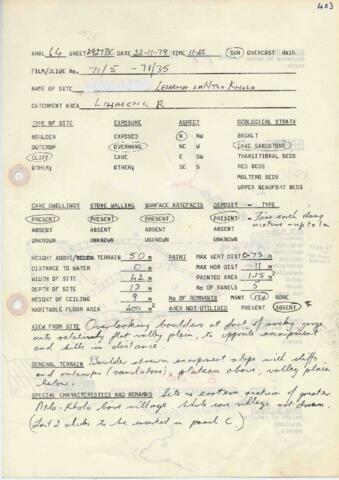 403
ARAL 64 SHEET 2927BC DATE 22-11-79 TIME 11.55 SUN OVERCAST RAIN
FILM/SLIDE No. 71/5 - 71/35
NAME OF SITE LEHAHA LA NTLO KHOLO
CATCHMENT AREA R
TYPE OF SITE EXPOSURE ASPECT GEOLOGICAL STRATA
BOULDER EXPOSED N NW BASALT
OUTCROP OVERHANG NE W CAVE SANDSTONE
CLIFF CAVE E SW TRANSITIONAL BEDS
OTHER: OTHER: SE S RED BEDS
MOLTENO BEDS
UPPER BEAUFORT BEDS
CAVE DWELLINGS STONE WALLING SURFACE ARTEFACTS DEPOSIT - TYPE
PRESENT PRESENT PRESENT PRESENT - Fine earth dung
ABSENT ABSENT ABSENT ABSENT mixture - up to 1m
UNKNOWN UNKNOWN UNKNOWN
HEIGHT ABOVE/BELOW TERRAIN 50 m PAINT MAX VERT DIST 0.73 m
DISTANCE TO WATER 0 m MAX HOR DIST 11 m
WIDTH OF SITE 42 m PAINTED AREA 1.15 m²
DEPTH OF SITE 13 m No OF PANELS 5
HEIGHT OF CEILING 9 m No OF REMNANTS MANY FEW NONE
HABITABLE FLOOR AREA 400 m² AREA NOT UTILISED PRESENT ABSENT
VIEW FROM SITE Overlooking boulders at foot of rocky gorge
onto relatively flat valley plain, to opposite escarpment
and hills in distance.
GENERAL TERRAIN Boulder strewn escarpment slope with cliffs
and outcrops (sandstone), plateau above, valley plain
below.
SPECIAL CHARACTERISTICS AND REMARKS Site is eastern portion of greater
Ntlo-Kholo cave village, whole cave village not drawn.
(Last 2 slides to be inserted in panel C.)